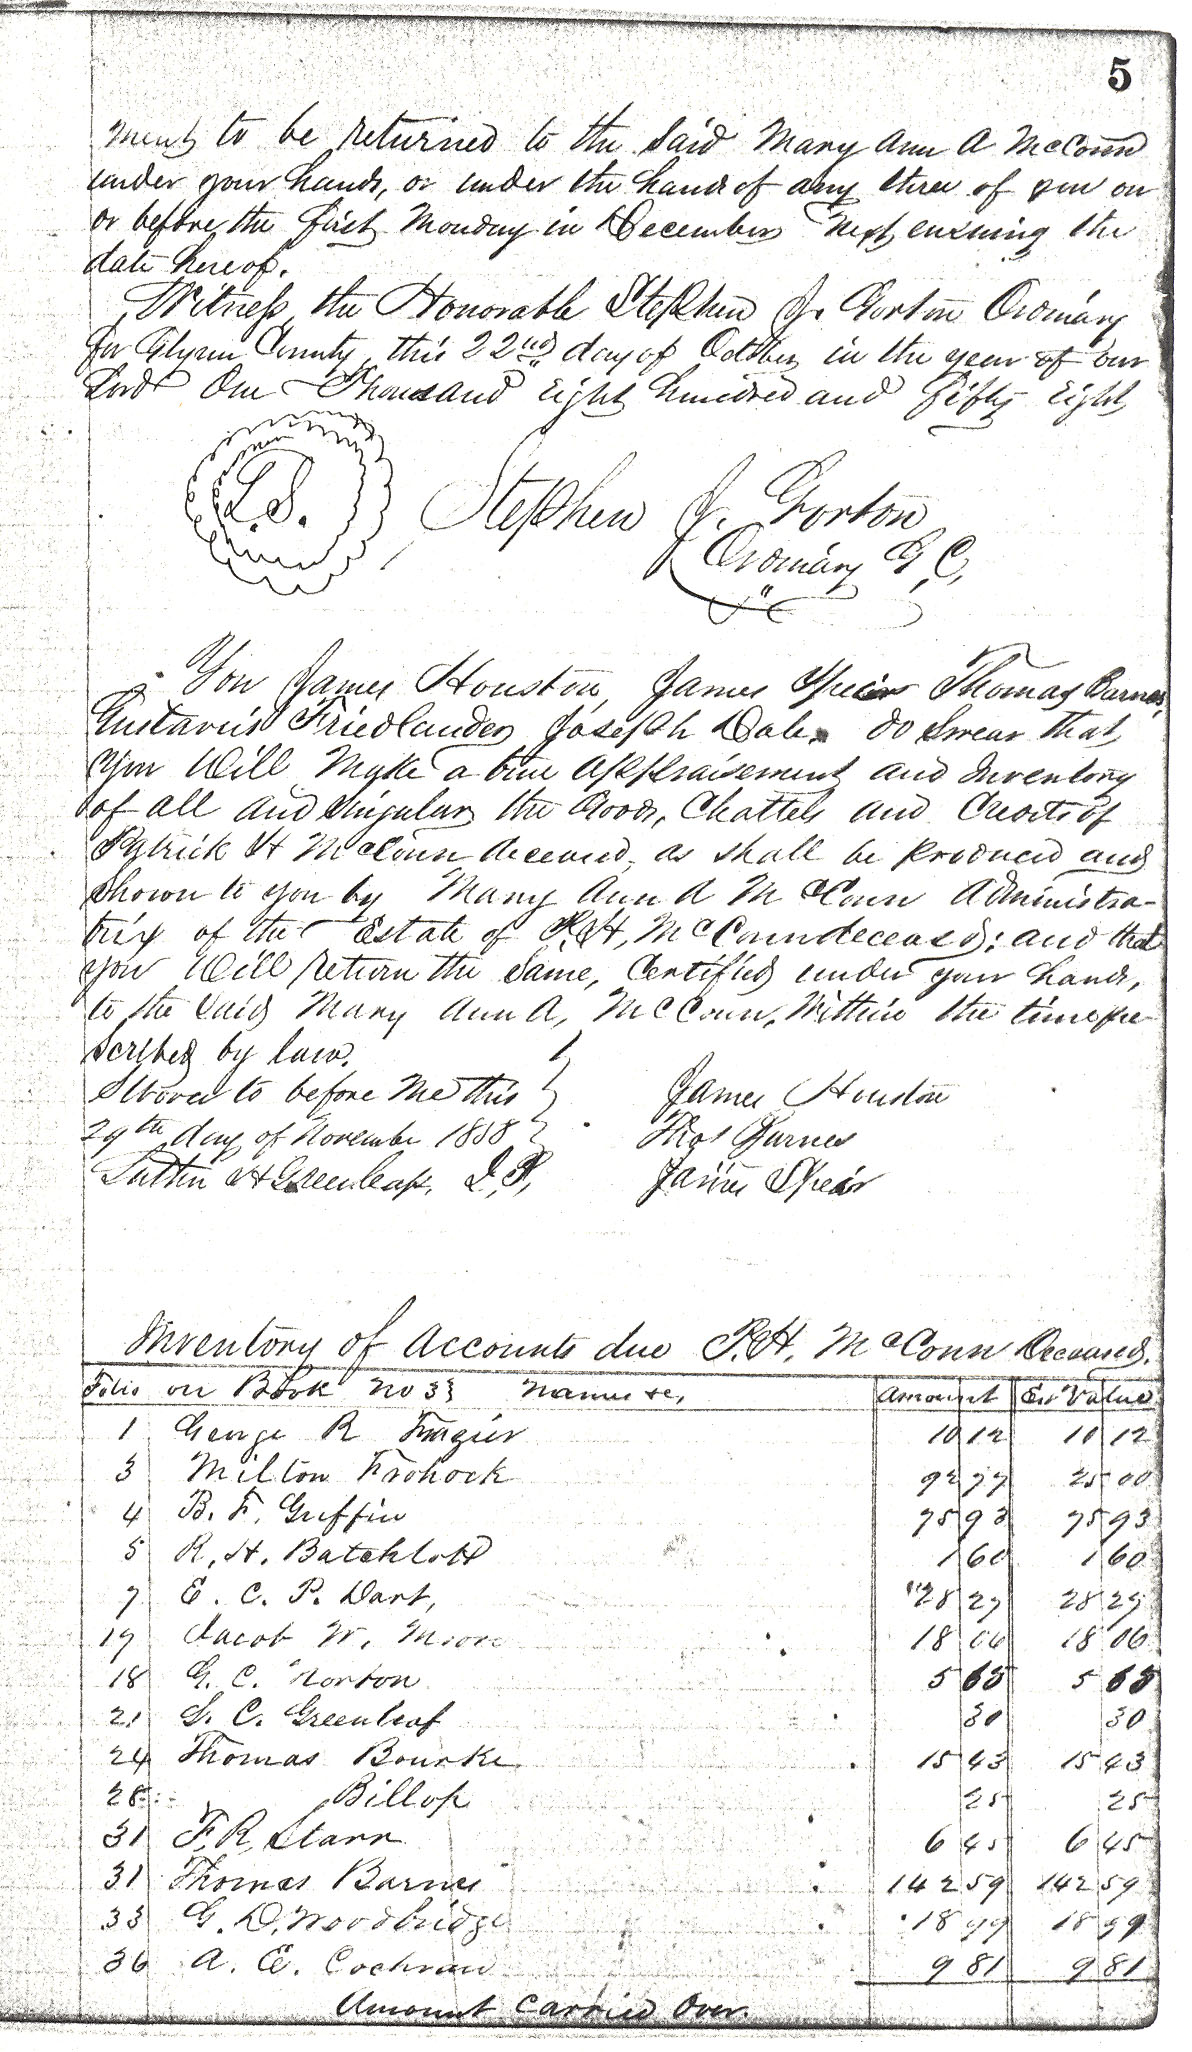 5
ment to be returned to the said Mary Ann A McConn
under your hands, or under the hands of any three of you on
or before the first Monday in December next ensuing the
date hereof.
Witness the Honorable Stephen J. Gorton Ordinary
for Glynn County, this 22nd day of October in the year of our
Lord One Thousand Eight hundred and fifty Eight
L.S.
Stephen J. Gorton
Ordinary G, C,
You James Houston, James Spears Thomas Barnes,
Gustavus Friedlander Joseph Dale do Swear that
you Will Make a true Appraisement and Inventory
of all and Singular the Goods, Chattels and Credits of
Patrick H McConn deceased, as shall be produced and
shown to you by Mary Ann A McConn Administra-
trix of the Estate of P.H. McConn deceased; and that
you Will return the Same, Certified under your hands,
to the Said Mary Ann A, McConn, Within the time pre-
scribed by law.
Sworn to before Me this
29th day of November 1858
Greenleaf, J.P,
James Houston
Thos Barnes
James Spear
Inventory of Accounts due P.H. McConn Deceased.
Folio on Book No 33 Names &c, Amount Est Value
1 George R Frazier 10 12 10 12
3 Milton Frohock 92 77 25 00
4 B. F. Guffin 75 93 75 93
5 R. H. Batchlott 1 60 1 60
7 E. C. P. Dart, 28 27 28 27
17 Jacob W. Moore 18 06 18 06
18 G. C. Norton 5 65 5 65
21 S. C. Greenleaf 30 30
24 Thomas Bourke 15 43 15 43
28 Billop 25 25
31 F. R. Starr 6 45 6 45
31 Thomas Barnes 142 59 142 59
33 G. D. Woodbridge 18 99 18 99
36 A. E. Cochran 9 81 9 81
Amount Carried Over.